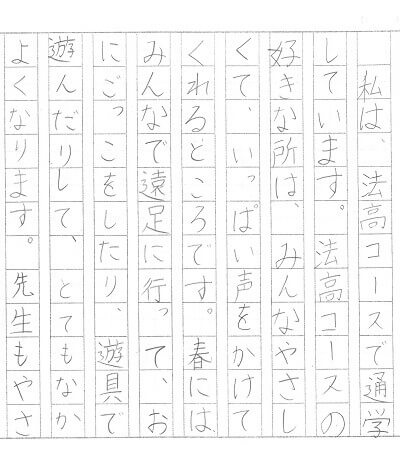 私は、法高コースで通学
しています。法高コースの
好きな所は、みんなやさし
くて、いっぱい声をかけて
くれるところです。春には
みんなで遠足に行って、お
にごっこをしたり、遊具で
遊んだりして、とてもなか
よくなります。先生もやさ